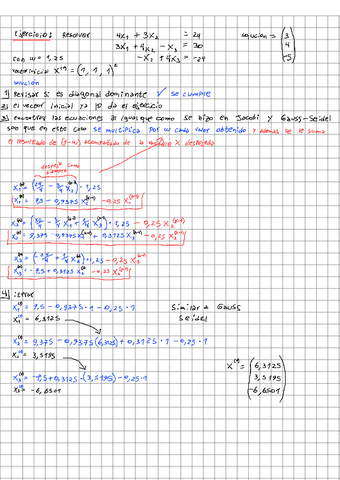 Ejercicio: Resolver 4x₁ + 3x₂ = 24 solución → (3
3x₁ + 4x₂ - x₃ = 30 4
-x₂ + 4x₃ = -24 -5)
con w = 1,25
vector inicial x⁽⁰⁾ = (1, 1, 1)ᵗ
solución
1) Revisar si es diagonal dominante ✓ se cumple
2) el vector inicial ya lo da el ejercicio
3) encontrar las ecuaciones al igual que como se hizo en Jacobi y Gauss-Seidel
solo que en este caso se multiplica por w cada valor obtenido y además se le suma
el resultado de (1-w) acompañado de la x despejada
despeje como siempre
x₁⁽ᵏ⁾ = (24/4 - 3/4 x₂⁽ᵏ⁻¹⁾) · 1,25
x₁⁽ᵏ⁾ = 7,5 - 0,9375 x₂⁽ᵏ⁻¹⁾ - 0,25 x₁⁽ᵏ⁻¹⁾
x₂⁽ᵏ⁾ = (30/4 - 3/4 x₁⁽ᵏ⁾ + 1/4 x₃⁽ᵏ⁻¹⁾) · 1,25 - 0,25 x₂⁽ᵏ⁻¹⁾
x₂⁽ᵏ⁾ = 9,375 - 0,9375 x₁⁽ᵏ⁾ + 0,3125 x₃⁽ᵏ⁻¹⁾ - 0,25 x₂⁽ᵏ⁻¹⁾
x₃⁽ᵏ⁾ = (-24/4 + 1/4 x₂⁽ᵏ⁾) · 1,25 - 0,25 x₃⁽ᵏ⁻¹⁾
x₃⁽ᵏ⁾ = -7,5 + 0,3125 x₂⁽ᵏ⁾ - 0,25 x₃⁽ᵏ⁻¹⁾
4) iterar
x₁⁽¹⁾ = 7,5 - 0,9375 · 1 - 0,25 · 1 Similar a Gauss
x₁⁽¹⁾ = 6,3125 Seidel
x₂⁽¹⁾ = 9,375 - 0,9375(6,3125) + 0,3125 · 1 - 0,25 · 1
x₂⁽¹⁾ = 3,5195
x₃⁽¹⁾ = -7,5 + 0,3125 · (3,5195) - 0,25 · 1
x₃⁽¹⁾ = -6,6501
x⁽¹⁾ = (6,3125
3,5195
-6,6501)